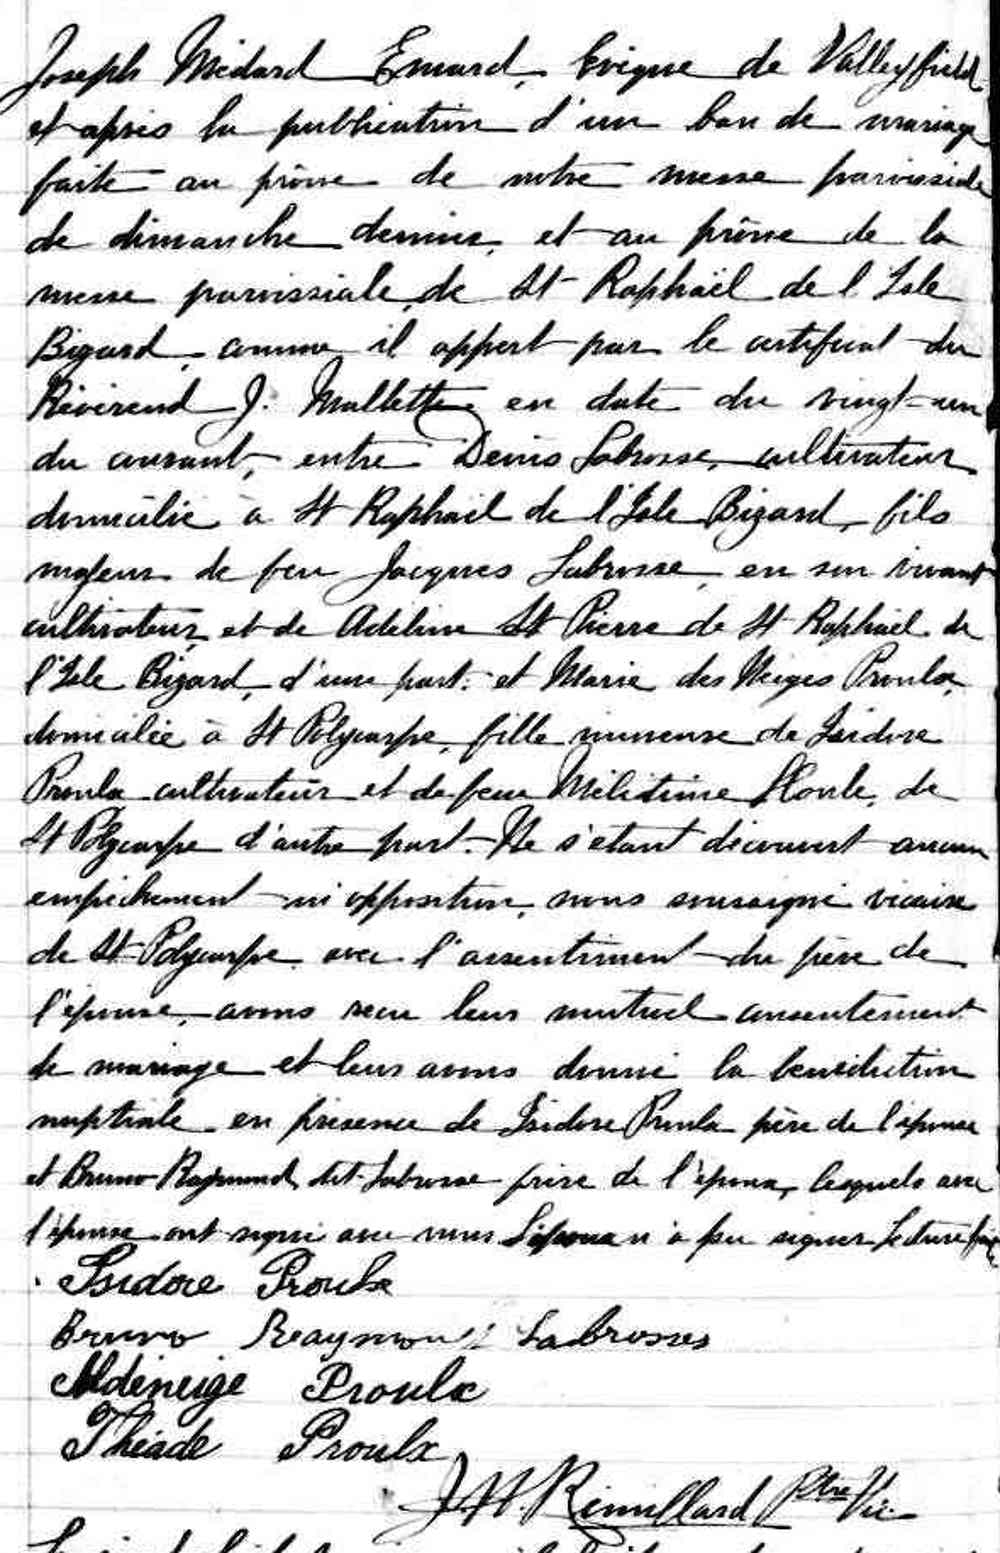 Joseph Médard Emard, Evêque de Valleyfield
et après la publication d'un ban de mariage
faite au prône de notre messe paroissiale
de dimanche dernier, et au prône de la
messe paroissiale de St Raphaël de l'Isle
Bizard, comme il appert par le certificat du
Révérend J. Mallette en date du vingt-un
du courant, entre Denis Labrosse, cultivateur
domicilié à St Raphaël de l'Isle Bizard, fils
majeur de feu Jacques Labrosse en son vivant
cultivateur et de Adeline St Pierre de St Raphaël de
l'Isle Bizard, d'une part: et Marie des Neiges Proulx,
domiciliée à St Polycarpe, fille mineure de Isidore
Proulx cultivateur et de feue Mélitime Houle, de
St Polycarpe d'autre part. Ne s'étant découvert aucun
empêchement ni opposition, nous soussigné vicaire
de St Polycarpe avec l'assentiment du père de
l'épouse, avons reçu leur mutuel consentement
de mariage et leur avons donné la bénédiction
nuptiale en présence de Isidore Proulx père de l'épouse
et Bruno Raymond dit Labrosse frère de l'époux, lesquels avec
l'épouse ont signé avec nous L'époux n'a pu signer. Lecture faite
Isidore Proulx
Bruno Reaymond Labrosses
Mdeneige Proulx
Théade Proulx
J. H. Remillard Ptre Vic.